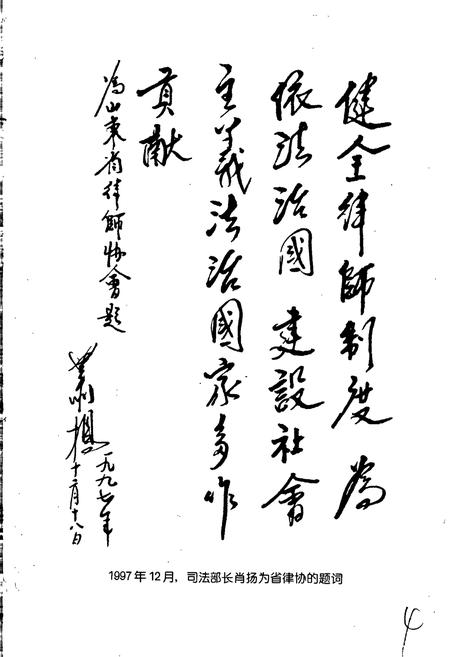 健全律師制度為
依法治國建設社會
主義法治國家多作
貢献
為山東省律師协會題
肖揚
一九九七年
十二月十八日
1997年12月，司法部长肖扬为省律协的题词
4